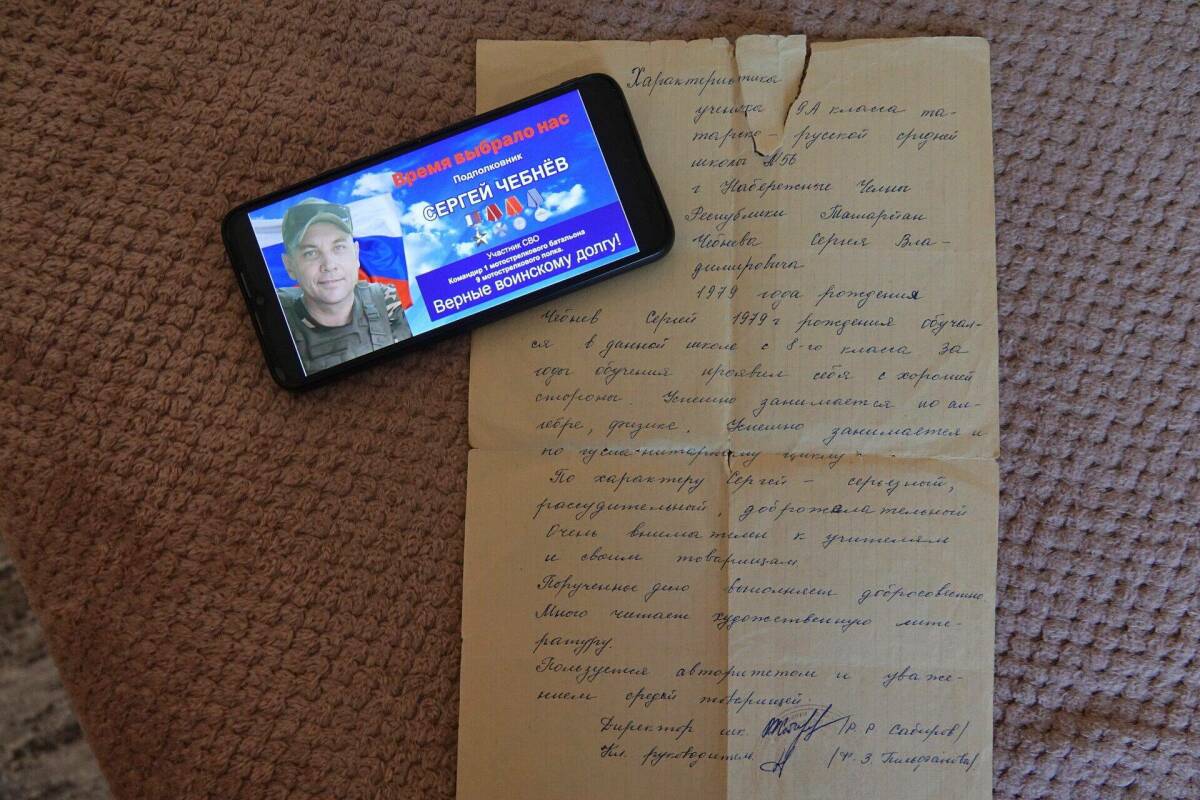 Время выбрало нас
Подполковник
СЕРГЕЙ ЧЕБНЁВ
Участник СВО
Командир 1 мотострелкового батальона
9 мотострелкового полка.
Верные воинскому долгу!
Характеристика
ученика 9А класса та-
тарско - русской средней
школы №56
г Набережные Челны
Республики Татарстан
Чебнева Сергея Вла-
димировича
1979 года рождения
Чебнев Сергей 1979 г рождения обучал-
ся в данной школе с 8-го класса За
годы обучения проявил себя с хорошей
стороны. Успешно занимается по ал-
гебре, физике. Успешно занимается и
по гуманитарному циклу
По характеру Сергей - серьезный,
рассудительный, доброжелательный
Очень внимателен к учителям
и своим товарищам
Порученное дело выполняет добросовестно
Много читает художественную лите-
ратуру.
Пользуется авторитетом и уваже-
нием среди товарищей.
Директор шк. /Р. Р Сабиров/
Кл. руководитель /Ф. З.